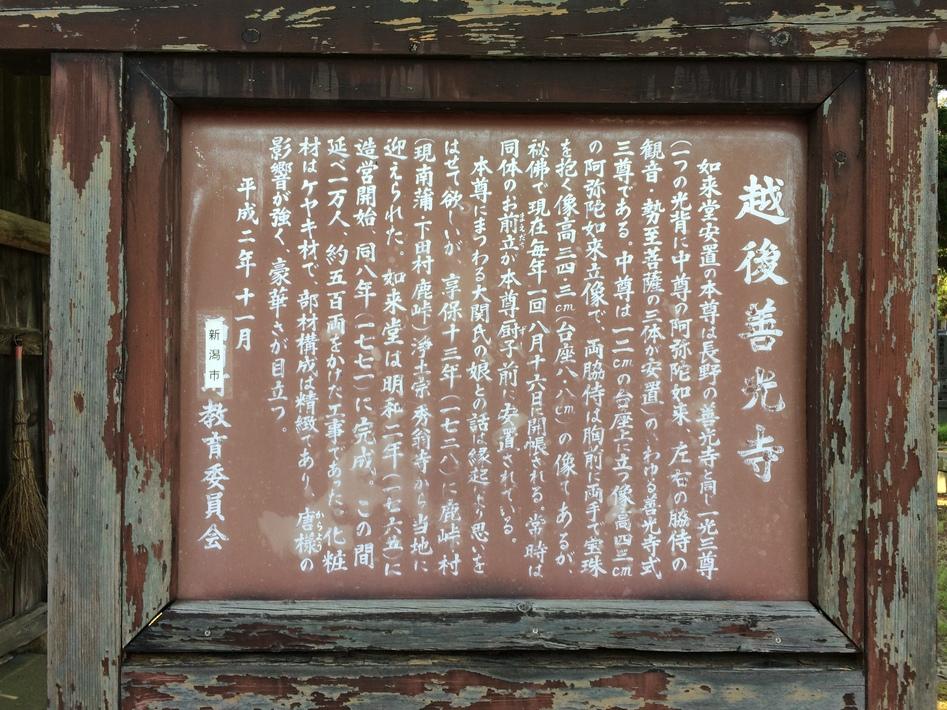 越後善光寺
如来堂安置の本尊は長野の善光寺と同じ一光三尊
(一つの光背に中尊の阿弥陀如来 左右の脇侍の
観音・勢至菩薩の三体が安置)のいわゆる善光寺式
三尊である。中尊は一二㎝の台座上に立つ像高四三㎝
の阿弥陀如来立像で、両脇侍は胸前に両手で宝珠
を抱く像高三四・三㎝(台座八・八㎝)の像であるが、
秘佛で現在毎年一回八月十六日に開帳される。常時は
同体のお前立が本尊厨子前に安置されている。
まえだち
ずし
本尊にまつわる大関氏の娘との話は縁起より思いを
はせて欲しいが 享保十三年(一七二八)に鹿峠村
(現南蒲・下田村鹿峠)浄土宗秀翁寺から当地に
迎えられた。如来堂は明和二年(一七六五)に
造営開始、同八年(一七七一)に完成。この間
延べ一万人 約五百両をかけた工事であった。化粧
材はケヤキ材で、部材構成は精緻であり、唐様の
からよう
影響が強く、豪華さが目立つ。
平成二年十一月
新潟市
教育委員会